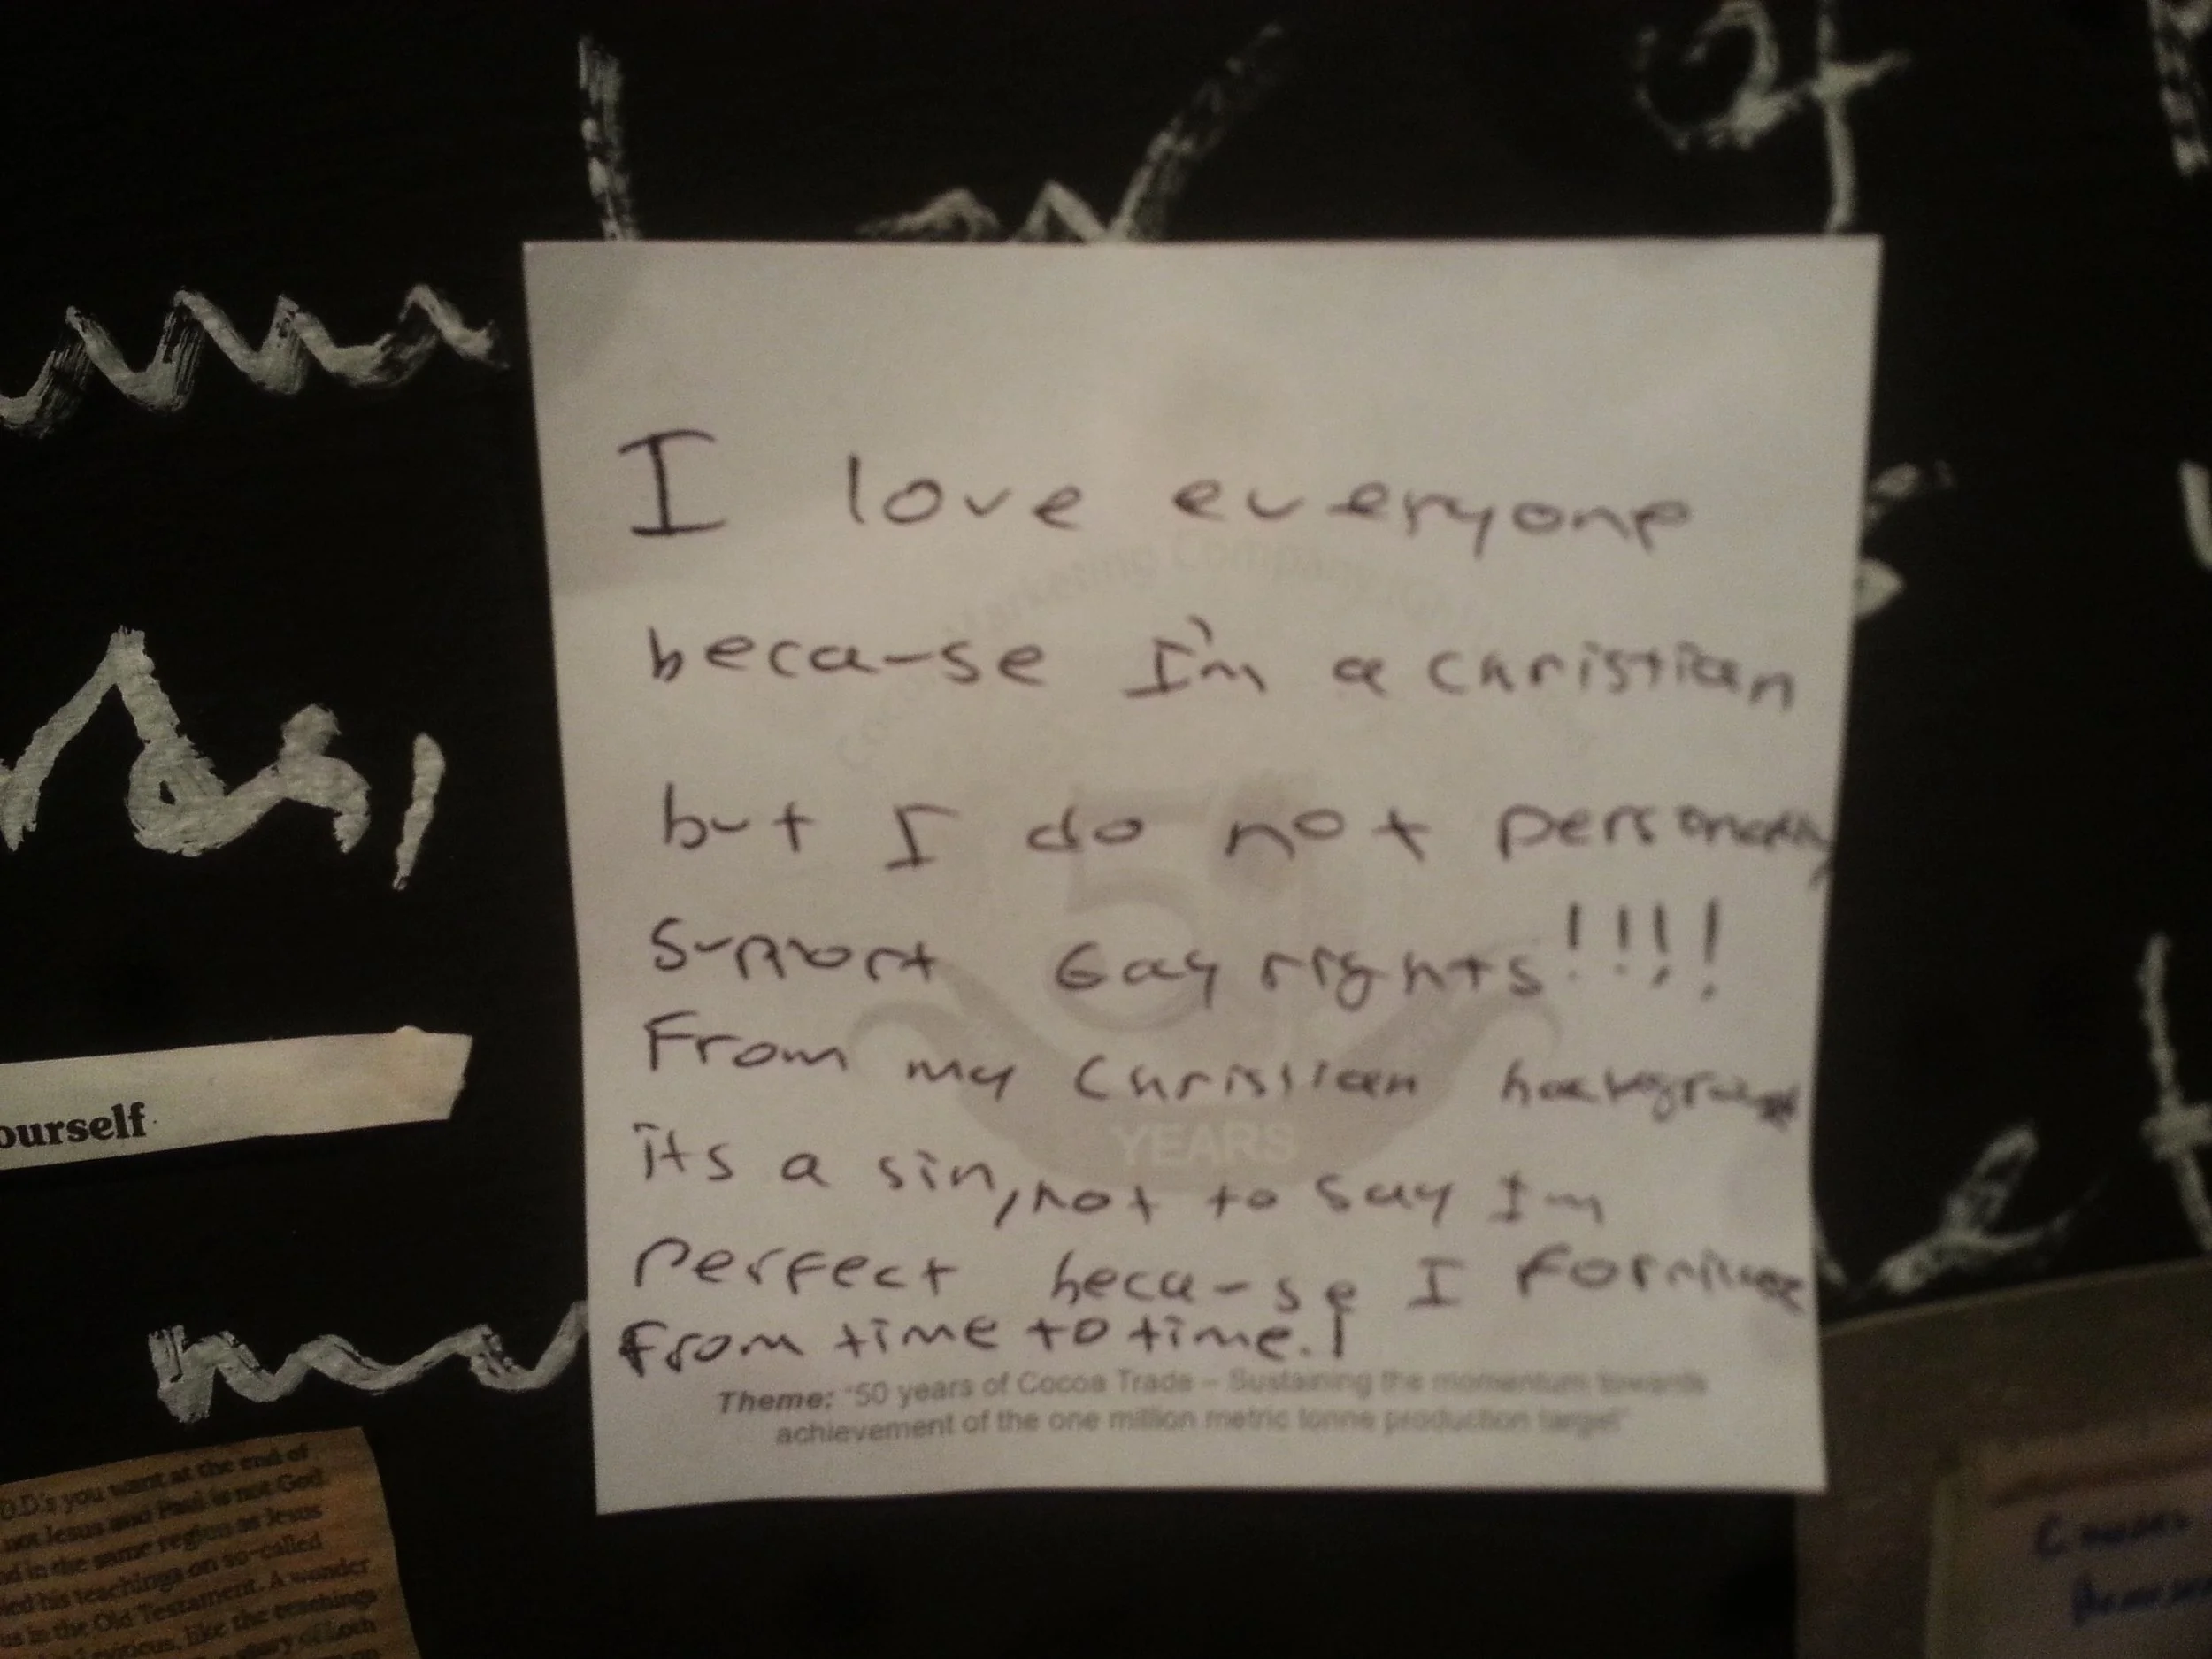 of
I love everyone
because I'm a Christian
but I do not personally
support Gay rights!!!!
From my Christian background
its a sin, not to say Im
perfect because I fornicate
from time to time.!
Cocoa Marketing Company
50
YEARS
Theme: "50 years of Cocoa Trade – Sustaining the momentum towards
achievement of the one million metric tonne production target"
ourself
D.D.'s you want at the end of
not Jesus and Paul is not God.
in the same region as Jesus
his teachings on so-called
in the Old Testament. A wonder
like the teachings
story of Loth